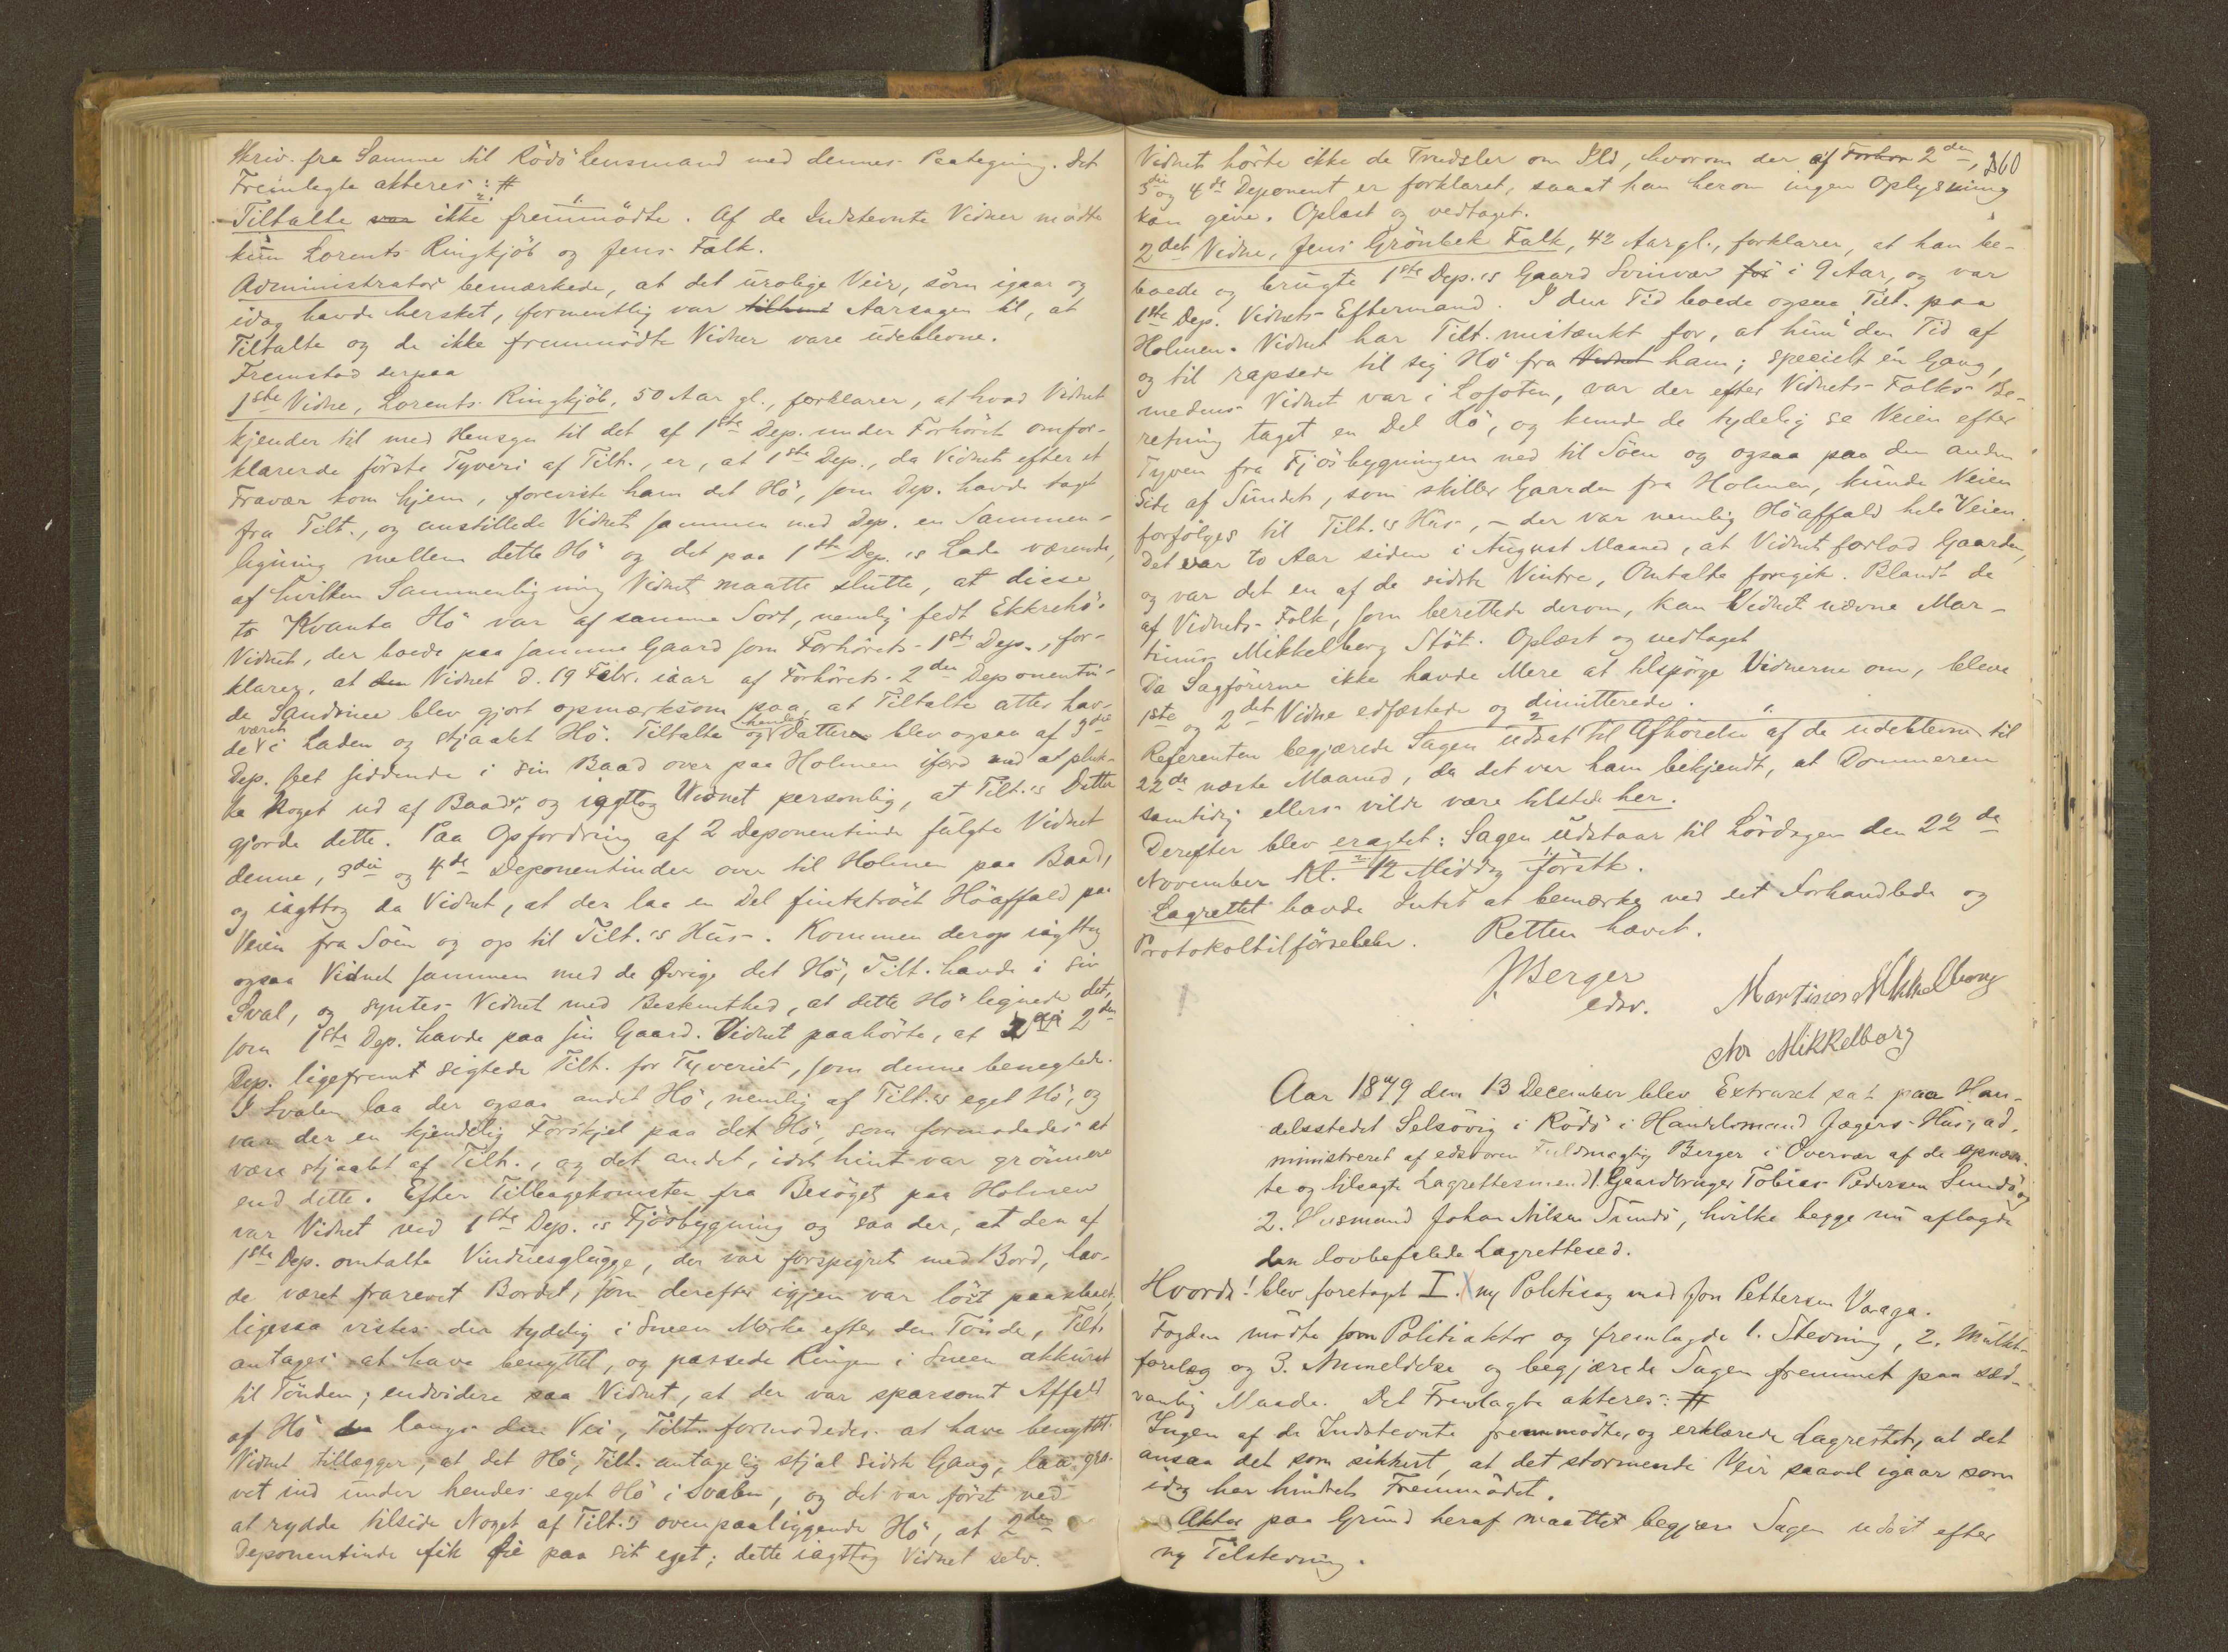 Skriv. fra Samme til Rödö Lensmand med dennes Paategning. Det
Fremlagte akteres: #
Tiltalte var ikke fremmödte. Af de Indstevnte Vidner mödte
kun Lorents Ringkjöb og Jens Falk.
Administrator bemærkede, at det urolige Veir, som igaar og
idag havde hersket, formentlig var Aarsagen til, at
Tiltalte og de ikke fremmödte Vidner vare udeblevne.
Fremstod derpaa
1ste Vidne, Lorents Ringkjöb, 50 Aar gl., forklarer, at hvad Vidnet
kjender til med Hensyn til det af 1ste Dep. under Forhöret omfor-
klarede förste Tyveri af Tilt., er, at 1ste Dep., da Vidnet efter et
Fravær kom hjem, foreviste ham det Hö, som Dep. havde taget
fra Tilt., og anstillede Vidnet sammen med Dep. en Sammen-
ligning mellem dette Hö og det paa 1ste Dep.'s Lade værende,
af hvilken Sammenligning Vidnet maatte slutte, at disse
to Kvanta Hö var af samme Sort, nemlig fedt Ekkrehö.
Vidnet, der boede paa samme Gaard som Forhörets 1ste Dep., for-
klarer, at den Vidnet d. 19 Febr. iaar af Forhörets 2den Deponentin-
de Sandvær blev gjort opmærksom paa, at Tiltalte atter hav-
de været i Laden og stjaalet Hö. Tiltalte og hendes Datter blev ogsaa af 3die
Dep. seet siddende i sin Baad over paa Holmen ifærd med at pluk-
ke Noget ud af Baaden, og iagttog Vidnet personlig, at Tilt.'s Datter
gjorde dette. Paa Opfordring af 2 Deponentinde fulgte Vidnet
denne, 3die og 4de Deponentinder over til Holmen paa Baad,
og iagttog da Vidnet, at der laa en Del fintströet Höaffald paa
Veien fra Söen og op til Tilt.'s Hus. Kommen derop iagttog
ogsaa Vidnet sammen med de Övrige det Hö, Tilt. havde i sin
Sval, og syntes Vidnet med Bestemthed, at dette Hö lignede det,
som 1ste Dep. havde paa sin Gaard. Vidnet paahörte, at 2den
Dep. ligefremt sigtede Tilt. for Tyveriet, som denne benegtede.
I Svalen laa der ogsaa andet Hö, nemlig af Tilt.'s eget Hö, og
var der en kjendelig Forskjel paa det Hö, som formodedes at
være stjaalet af Tilt., og det andet, idet hint var grönnere
end dette. Efter Tilbagekomsten fra Besöget paa Holmen
var Vidnet ved 1ste Dep.'s Fjösbygning og saa der, at den af
1ste Dep. omtalte Vinduesglugge, der var forspigret med Bord, hav-
de været frarevet Bordet, som derefter igjen var löst paaslaaet,
ligesaa vistes der tydelig i Sneen Mærke efter den Tönde, Tilt.
antages at have benyttet, og passede Ringen i Sneen akkurat
til Tönden; endvidere saa Vidnet, at der var sparsomt Affald
af Hö langs den Vei, Tilt. formodedes at have benyttet.
Vidnet tillægger, at det Hö, Tilt. antagelig stjal sidste Gang, laa gra-
vet ind under hendes eget Hö i Svalen, og det var först ved
at rydde tilside Noget af Tilt.'s ovenpaaliggende Hö, at 2den
Deponentinde fik Öie paa sit eget; dette iagttog Vidnet selv.
260
Vidnet hörte ikke de Trudsler om Ild, hvorom der af Forhör 2den,
3die og 4de Deponent er forklaret, saaat han herom ingen Oplysning
kan give. Oplæst og vedtaget.
2det Vidne, Jens Grönbek Falk, 42 Aar gl., forklarer, at han be-
boede og brugte 1ste Dep.'s Gaard Svinvær for i 9 Aar, og var
1ste Dep. Vidnets Eftermand. I den Tid boede ogsaa Tilt. paa
Holmen. Vidnet har Tilt. mistænkt for, at hun i den Tid af
og til rapsede til sig Hö fra Vidnet ham; specielt én Gang,
medens Vidnet var i Lofoten, var der efter Vidnets Folks Be-
retning taget en Del Hö, og kunde de tydelig se Veien efter
Tyven fra Fjösbygningen ned til Söen og ogsaa paa den anden
Side af Sundet, som skiller Gaarden fra Holmen, kunde Veien
forfölges til Tilt.'s Hus, – der var nemlig Höaffald hele Veien.
Det var to Aar siden i August Maaned, at Vidnet forlod Gaarden,
og var det en af de sidste Vintre, Omtalte foregik. Blandt de
af Vidnets Folk, som berettede derom, kan Vidnet nævne Mar-
tinus Mikkelborg Stöt. Oplæst og vedtaget
Da Sagförerne ikke havde Mere at tilspörge Vidnerne om, bleve
1ste og 2det Vidne edfæstede og dimitterede.
Referenten begjærede Sagen udsat til Afhörelse af de udeblevne til
22de næste Maaned, da det var ham bekjendt, at Dommeren
samtidig ellers vilde være tilstede her.
Derefter blev eragtet: Sagen udstaar til Lördagen den 22de
November Kl. 12 Middag förstk.
Lagrettet havde Intet at bemærke ved det Forhandlede og
Protokoltilförselen. Retten hævet.
JBerger
edsv.
Martinus Mikkelborg
Mikkelborg
Aar 1879 den 13 December blev Extraret sat paa Han-
delsstedet Selsövig i Rödö i Handelsmand Jægers Hus, ad-
ministreret af edsvoren Fuldmægtig Berger i Overvær af de opnævn-
te og tilsagte Lagrettesmænd 1. Gaardbruger Tobias Pedersen Sundö og
2. Husmand Johan Nilsen Sundö, hvilke begge nu aflagde
den lovbefalede Lagretteсed.
Hvorda! blev foretaget I. ny Politisag mod Jon Pettersen Vaaga.
Fogden mödte som Politiaktor og fremlagde 1. Stevning, 2. Mulkt-
forelæg og 3. Anmeldelse og begjærede Sagen fremmet paa sæd-
vanlig Maade. Det Fremlagte akteres: #
Ingen af de Indstevnte fremmödte, og erklærede Lagrettet, at det
ansaa det som sikkert, at det stormende Veir saavel igaar som
idag har hindret Fremmödet.
Aktor paa Grund heraf maattet begjære Sagen udsat efter
ny Tilstevning.